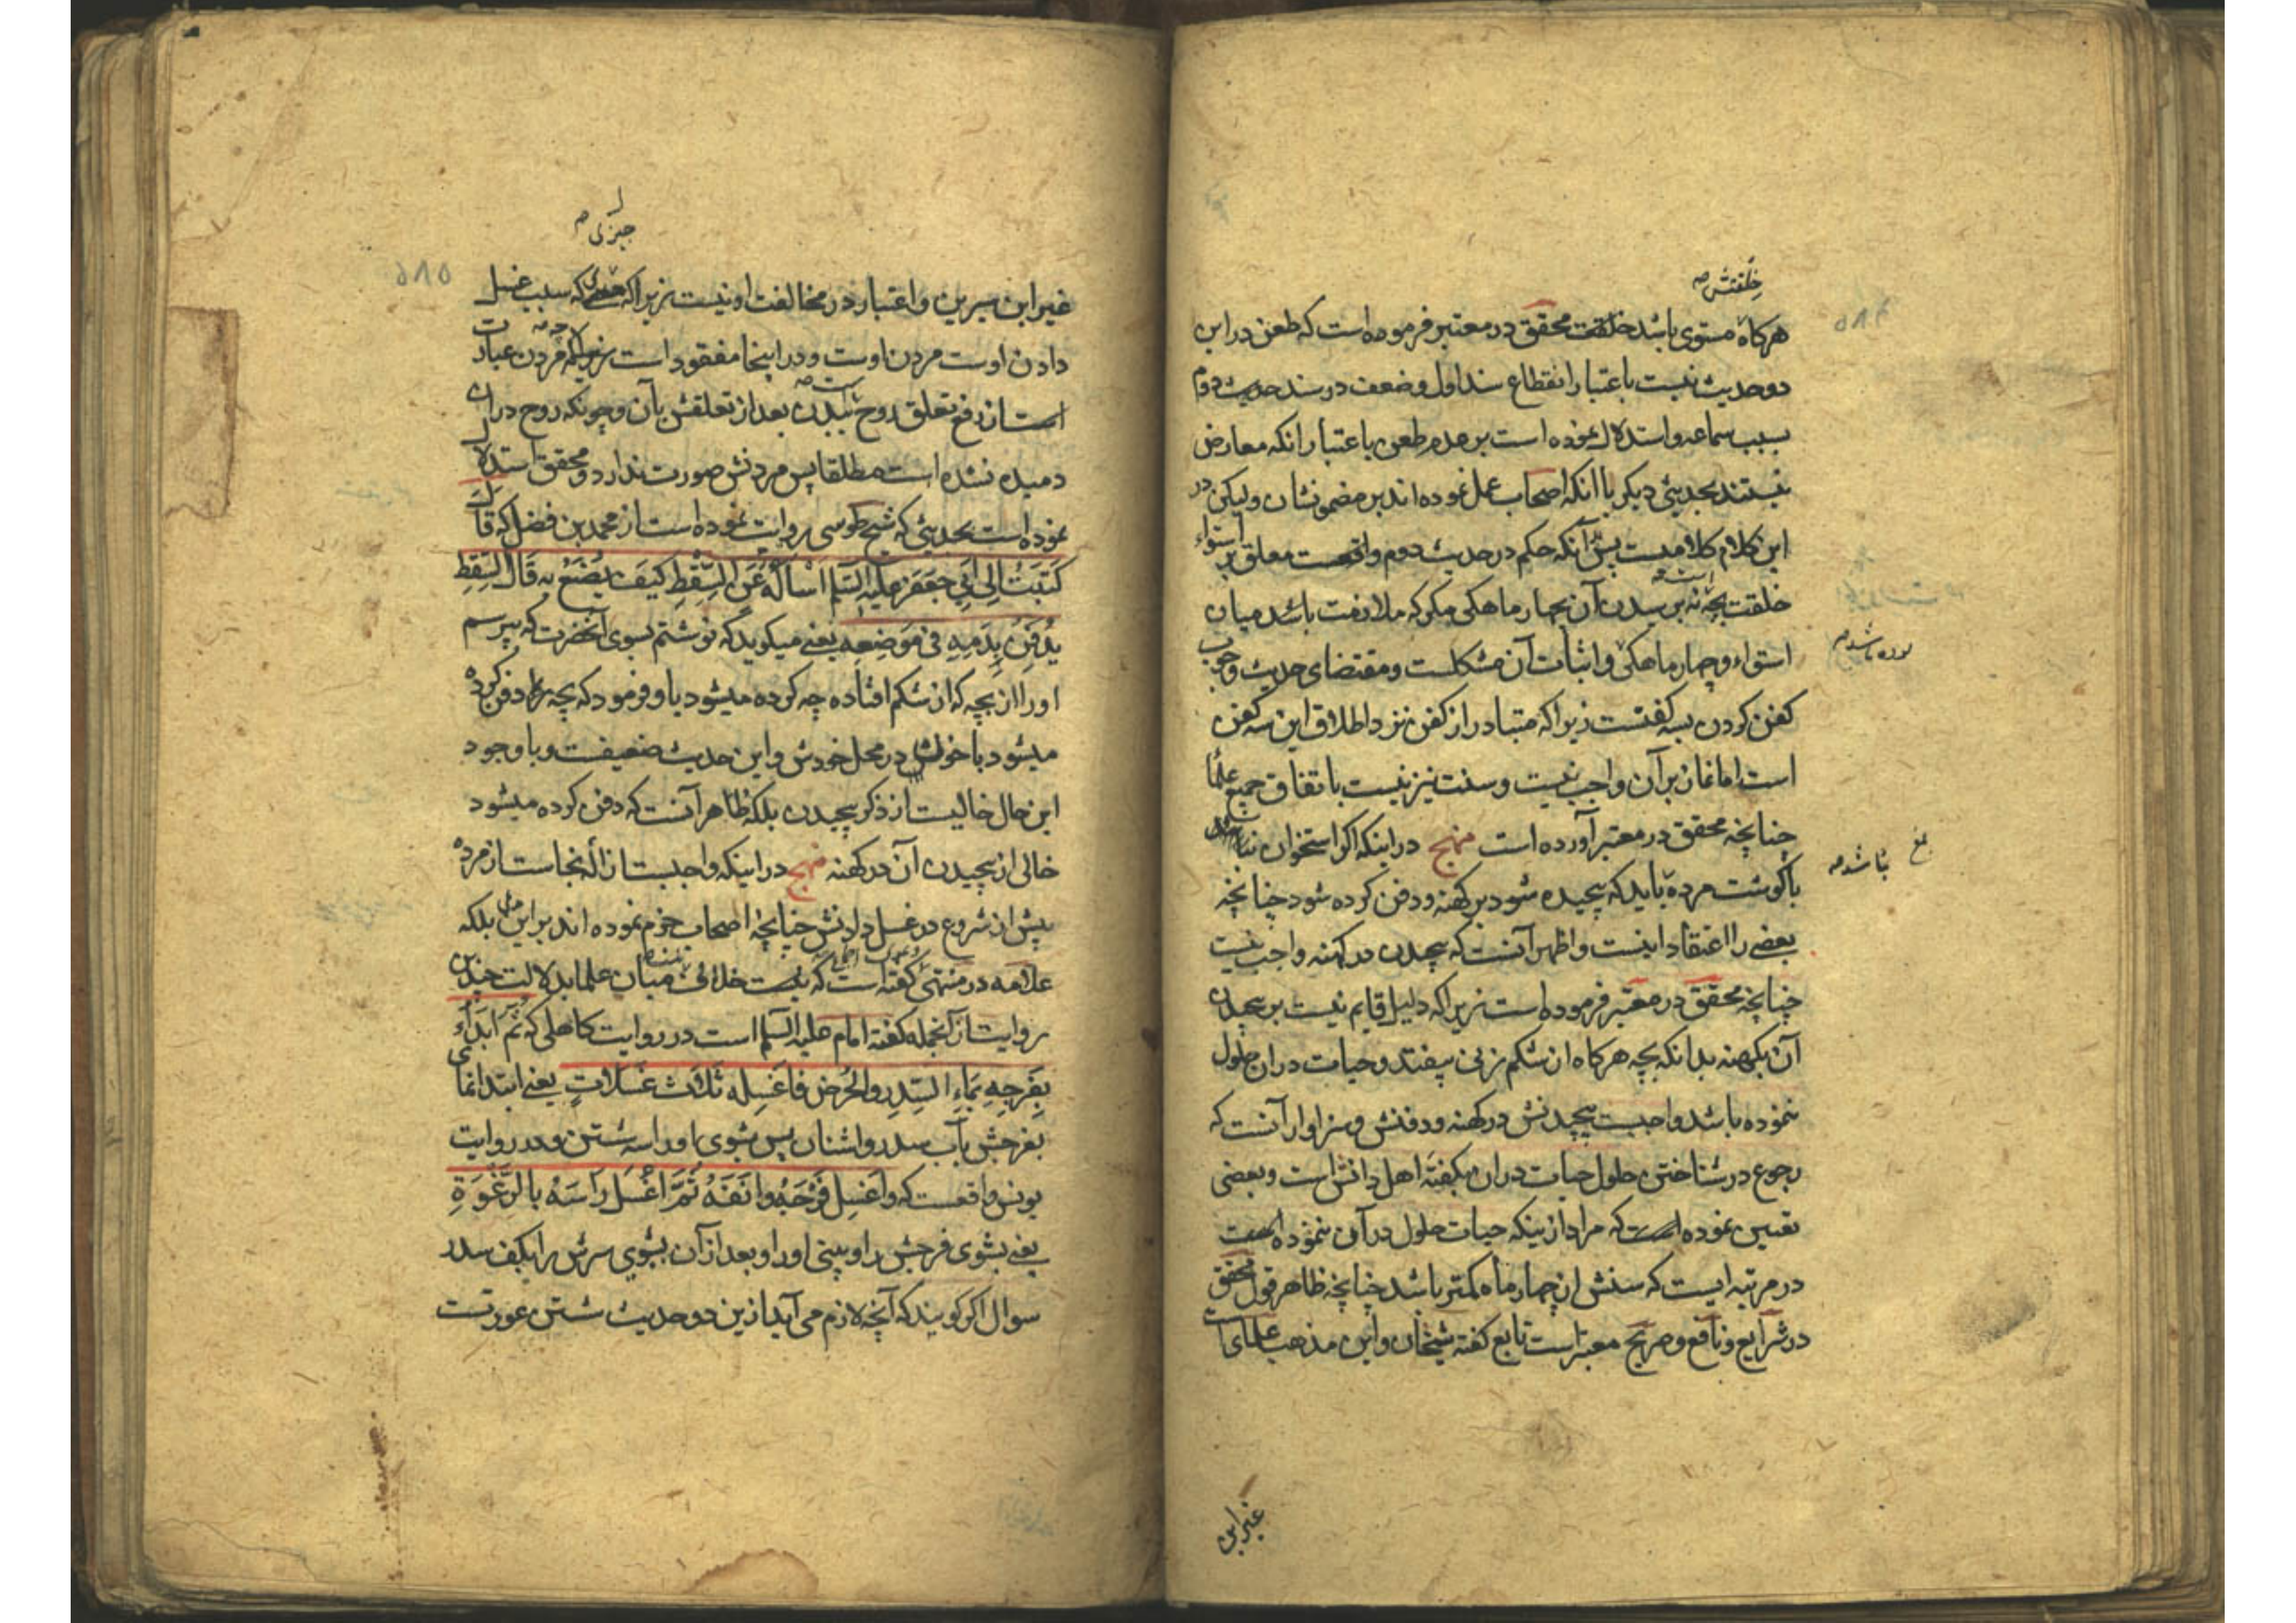 خلقتش صح
هرکاه مستوی باشد خلقت محقق در معتبر فرموده است که طعن در این
دو حدیث نیست باعتبار انقطاع سند اول و ضعف در سند حدیث دوم
بسبب سماعه و استدلال نموده است بر عدم طعن باعتبار انکه معارض
نیستند بحدیثی دیکر با انکه اصحاب عمل نموده اند بر مضمونشان ولیکن در
این کلام کلامیست پس آنکه حکم در حدیث دوم واقعست معلق بر استواء
خلقت بچه نه برسیدن آن بچهار ماهکی مکر که ملازمت باشد میان
استواء و چهار ماهکی و اثبات آن مشکلست و مقتضای حدیث وجوب
کفن کردن بسه کفنست زیرا که متبادر از کفن نزد اطلاق این سه کفن
است اما نماز بر آن واجب نیست و سنت نیز نیست باتفاق جمیع علما
چنانچه محقق در معتبر آورده است منهج در اینکه اکر استخوان
باکوشت مرده باید که پیچیده شود بر کهنه و دفن کرده شود چنانچه
بعضی را اعتقاد اینست و اظهر آنست که پیچیدن در کهنه واجب نیست
چنانچه محقق در معتبر فرموده است زیرا که دلیل قایم نیست بر پیچیدن
آن بکهنه بدانکه بچه هرکاه از شکم زنی بیفتد و حیات در ان حلول
ننموده باشد واجبست پیچیدنش در کهنه و دفنش و سزاوار آنست که
رجوع در شناختن حلول حیات در ان بکفتهٔ اهل دانش است و بعضی
تعیین نموده است که مراد از ینکه حیات حلول در آن ننموده است
در مرتبه ایست که سنش از چهار ماه کمتر باشد چنانچه ظاهر قول محقق
در شرایع و نافع و صریح معتبر است تابع کفته شیخان و این مذهب علمای است
باشد صح
غیر ابن
جزی صح
غیر ابن سیرین و اعتبار در مخالفت او نیست زیرا که که سبب غسل
دادن اوست مردن اوست و در اینجا مفقود است زیرا که مردن عبارت
است از رفع تعلق روح ببدن بعد از تعلقش بآن و چونکه روح در ان
دمیده نشده است مطلقا پس مردنش صورت ندارد و محقق استدلال
نموده است بحدیثی که شیخ طوسی روایت نموده است از محمد بن فضل که قال
کَتَبتُ اِلی اَبی جَعفَر علیه السلم اسأله عَنِ السِّقطِ کَیفَ یُصنَعُ بِه قالَ السِّقطِ
یُدفَنُ بِدَمِهِ فی مَوضِعِهِ یعنی میکوید که نوشتم بسوی آنحضرت که میپرسم
او را از بچه که از شکم افتاده چه کرده میشود باو فرمود که بچه دفن کرده
میشود با خونش در محل خودش و این حدیث ضعیفست و با وجود
این حال خالیست از ذکر پیچیدن بلکه ظاهر آنست که دفن کرده میشود
خالی از پیچیدن آن در کهنه منهج در اینکه واجبست ازالهٔ نجاست از مرده
پیش از شروع در غسل دادنش چنانچه اصحاب جزم نموده اند بر این بلکه
علامه در منتهی کفته است که نیست خلافی میان علما بدلالت چندین
روایت از آنجمله کفته امام علیه السلم است در روایت کاهلی که ثُمَّ ابدَأ
بِفَرجِهِ بِماءِ السِّدرِ وَالحُرُضِ فَاغسِله ثَلاثَ غَسَلاتٍ یعنی ابتدا نمای
بفرجش بآب سدر و اشنان پس بشوی او را سه شستن و در روایت
یونس واقعست که وَاغسِل فَرجَهُ وَانقَه ثُمَّ اغسِل رَاسَهُ بِالرَّغوَةِ
یعنی بشوی فرجش را و او را و بعد از آن بشوی سرش را بکف سدر
سوال اکر کویند که آنچه لازم می آید از ین دو حدیث شستن عورتست